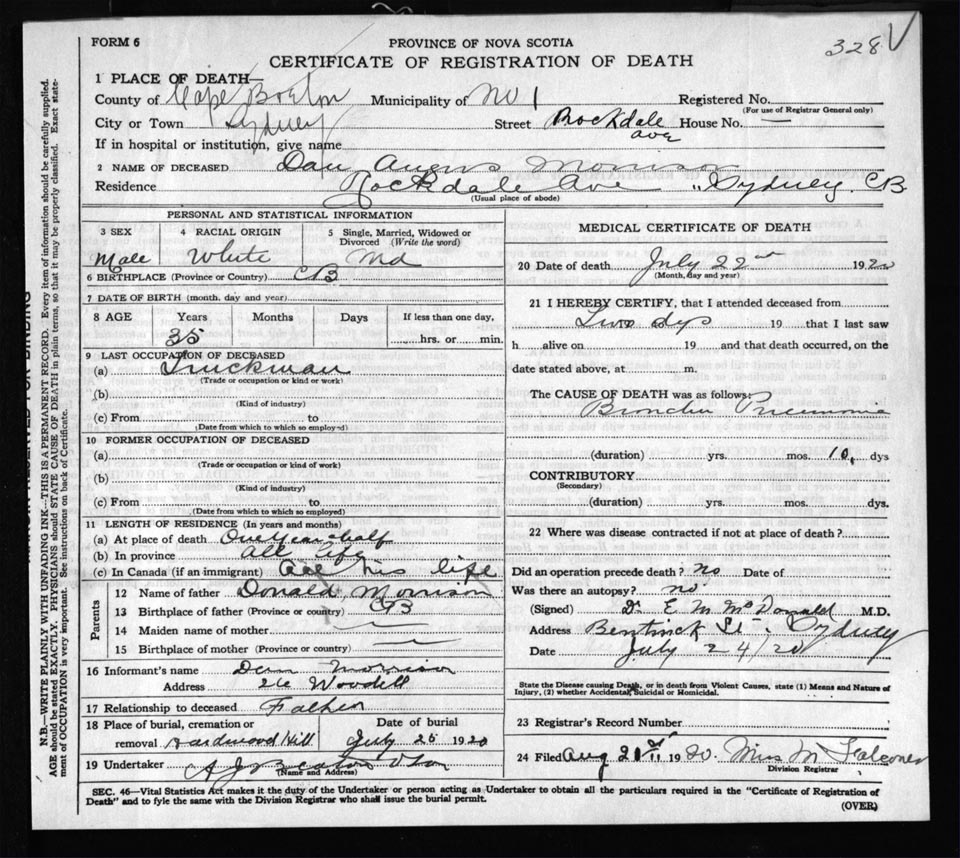 328 V
FORM 6
PROVINCE OF NOVA SCOTIA
CERTIFICATE OF REGISTRATION OF DEATH
1 PLACE OF DEATH—
County of Cape Breton Municipality of No 1 Registered No.
(For use of Registrar General only)
City or Town Sydney Street Rockdale ave House No. —
If in hospital or institution, give name
2 NAME OF DECEASED Dan Angus Morrison
Residence Rockdale Ave " Sydney, CB.
(Usual place of abode)
PERSONAL AND STATISTICAL INFORMATION
3 SEX 4 RACIAL ORIGIN 5 Single, Married, Widowed or Divorced (Write the word)
Male White Md
6 BIRTHPLACE (Province or Country) CB
7 DATE OF BIRTH (month, day and year)
8 AGE Years Months Days If less than one day,
35 hrs. or min.
9 LAST OCCUPATION OF DECEASED
(a) Truckman
(Trade or occupation or kind or work)
(b)
(Kind of industry)
(c) From to
(Date from which to which so employed)
10 FORMER OCCUPATION OF DECEASED
(a)
(Trade or occupation or kind of work)
(b)
(Kind of industry)
(c) From to
(Date from which to which so employed)
11 LENGTH OF RESIDENCE (In years and months)
(a) At place of death One Year half
(b) In province all life
(c) In Canada (if an immigrant) all his life
Parents
12 Name of father Donald Morrison
13 Birthplace of father (Province or country) CB
14 Maiden name of mother
15 Birthplace of mother (Province or country)
16 Informant's name Dan Morrison
Address Woodill
17 Relationship to deceased Father
18 Place of burial, cremation or Date of burial
removal Hardwood Hill July 25 1920
19 Undertaker A J Beaton & Son
(Name and Address)
MEDICAL CERTIFICATE OF DEATH
20 Date of death July 22nd 1920
(Month, day and year)
21 I HEREBY CERTIFY, that I attended deceased from
Two dys 19 that I last saw
h alive on 19 and that death occurred, on the
date stated above, at m.
The CAUSE OF DEATH was as follows:
Broncho Pneumonia
(duration) yrs. mos. 10. dys
CONTRIBUTORY
(Secondary)
(duration) yrs. mos. dys.
22 Where was disease contracted if not at place of death?
Did an operation precede death? no Date of
Was there an autopsy? no
(Signed) Dr E M McDonald M.D.
Address Bentinck St, Sydney
Date July 24/20
State the Disease causing Death, or in death from Violent Causes, state (1) Means and Nature of
Injury, (2) whether Accidental, Suicidal or Homicidal.
23 Registrar's Record Number
24 Filed Aug 21st 1920. Miss M Falconer
Division Registrar
SEC. 46—Vital Statistics Act makes it the duty of the Undertaker or person acting as Undertaker to obtain all the particulars required in the "Certificate of Registration of
Death" and to fyle the same with the Division Registrar who shall issue the burial permit.
(OVER)
N.B.—WRITE PLAINLY WITH UNFADING INK—THIS IS A PERMANENT RECORD. Every item of information should be carefully supplied.
AGE should be stated EXACTLY. PHYSICIANS should STATE CAUSE OF DEATH in plain terms, so that it may be properly classified. Exact state-
ment of OCCUPATION is very important. See instructions on back of Certificate.